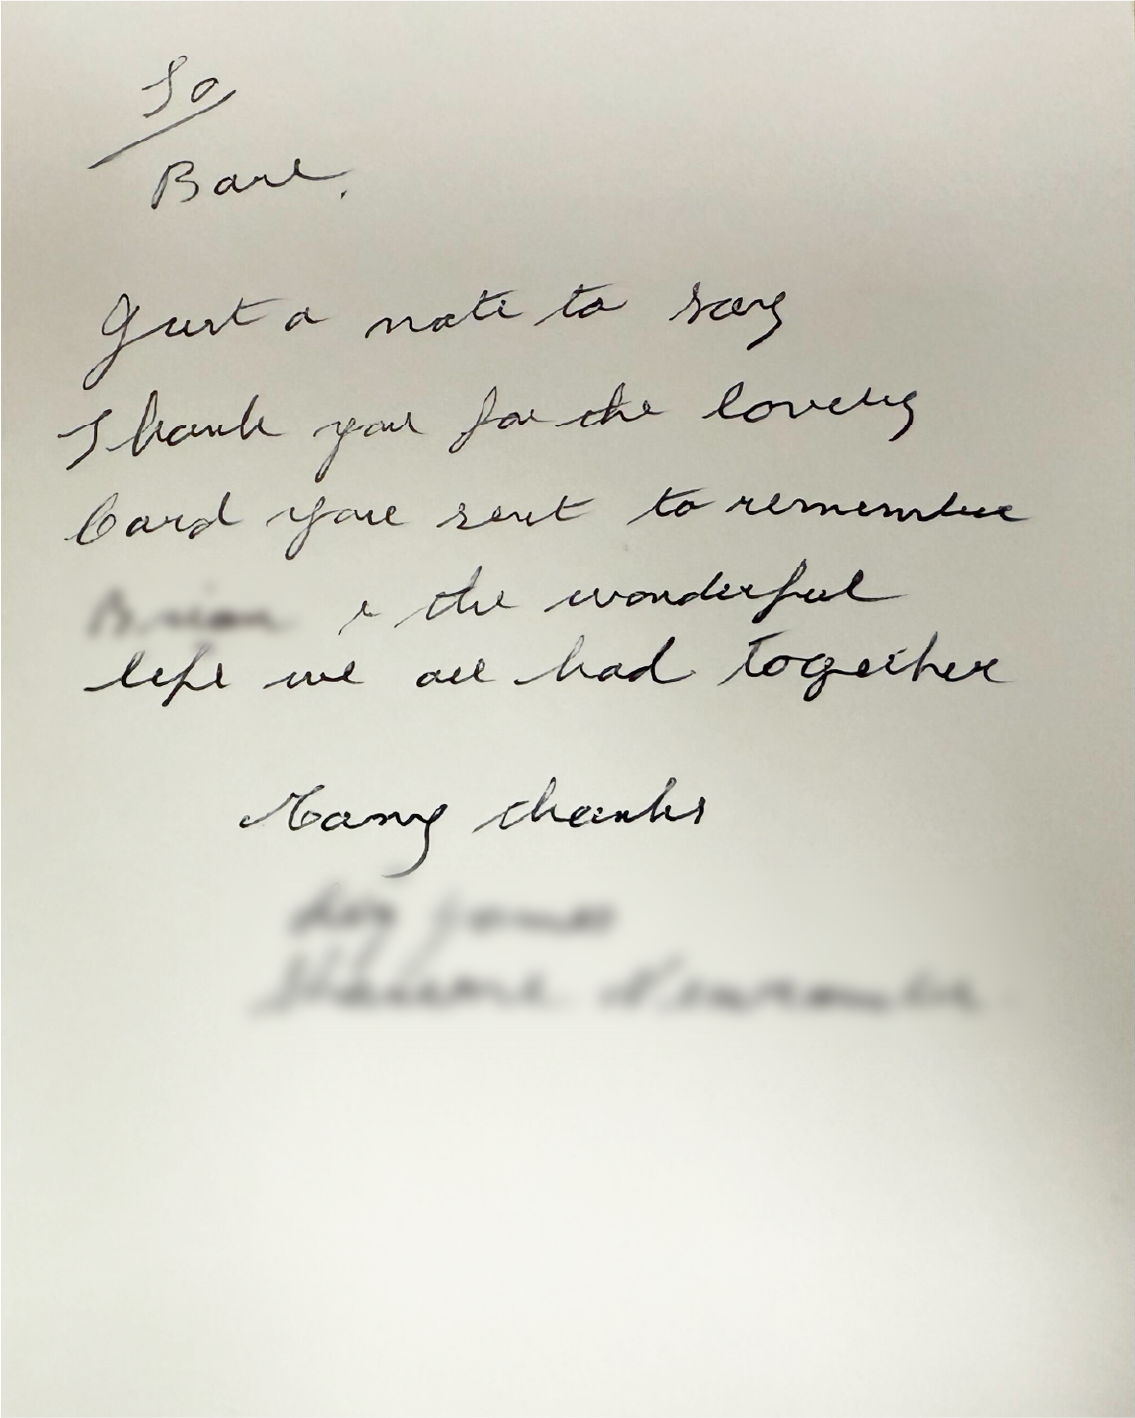 To
Bare.
Just a note to say
Thank you for the lovely
Card you sent to remember
& the wonderful
life we all had together
Many thanks